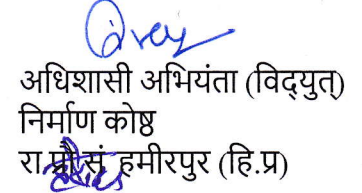 अधिशासी अभियंता (विद्युत्)
निर्माण कोष्ठ
रा.प्रौ.सं. हमीरपुर (हि.प्र)